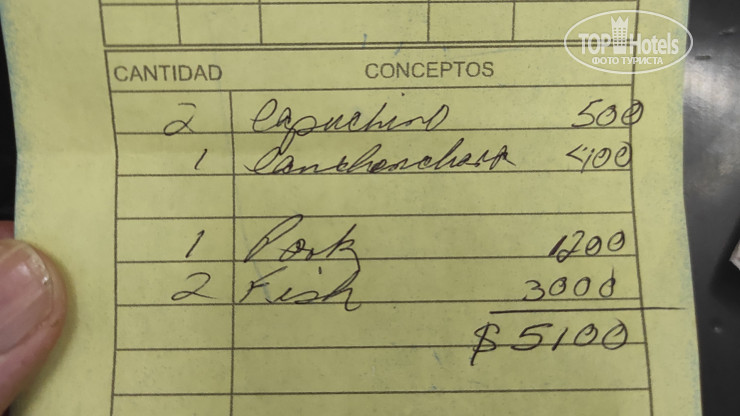 TOP Hotels
ФОТО ТУРИСТА
CANTIDAD CONCEPTOS
2 Capuchino 500
1 Canchanchara 400
1 Pork 1200
2 Fish 3000
$5100